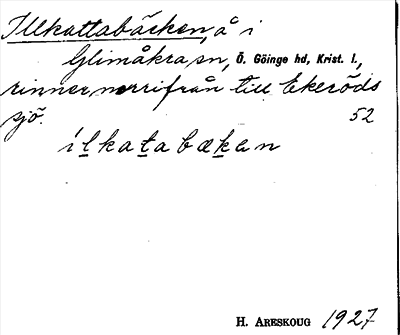 Illkattabäcken, å i
Glimåkra sn, Ö. Göinge hd, Krist. l.,
rinner norrifrån till Ekeröds
sjö. 52
ilkatabæken
H. Areskoug 1927